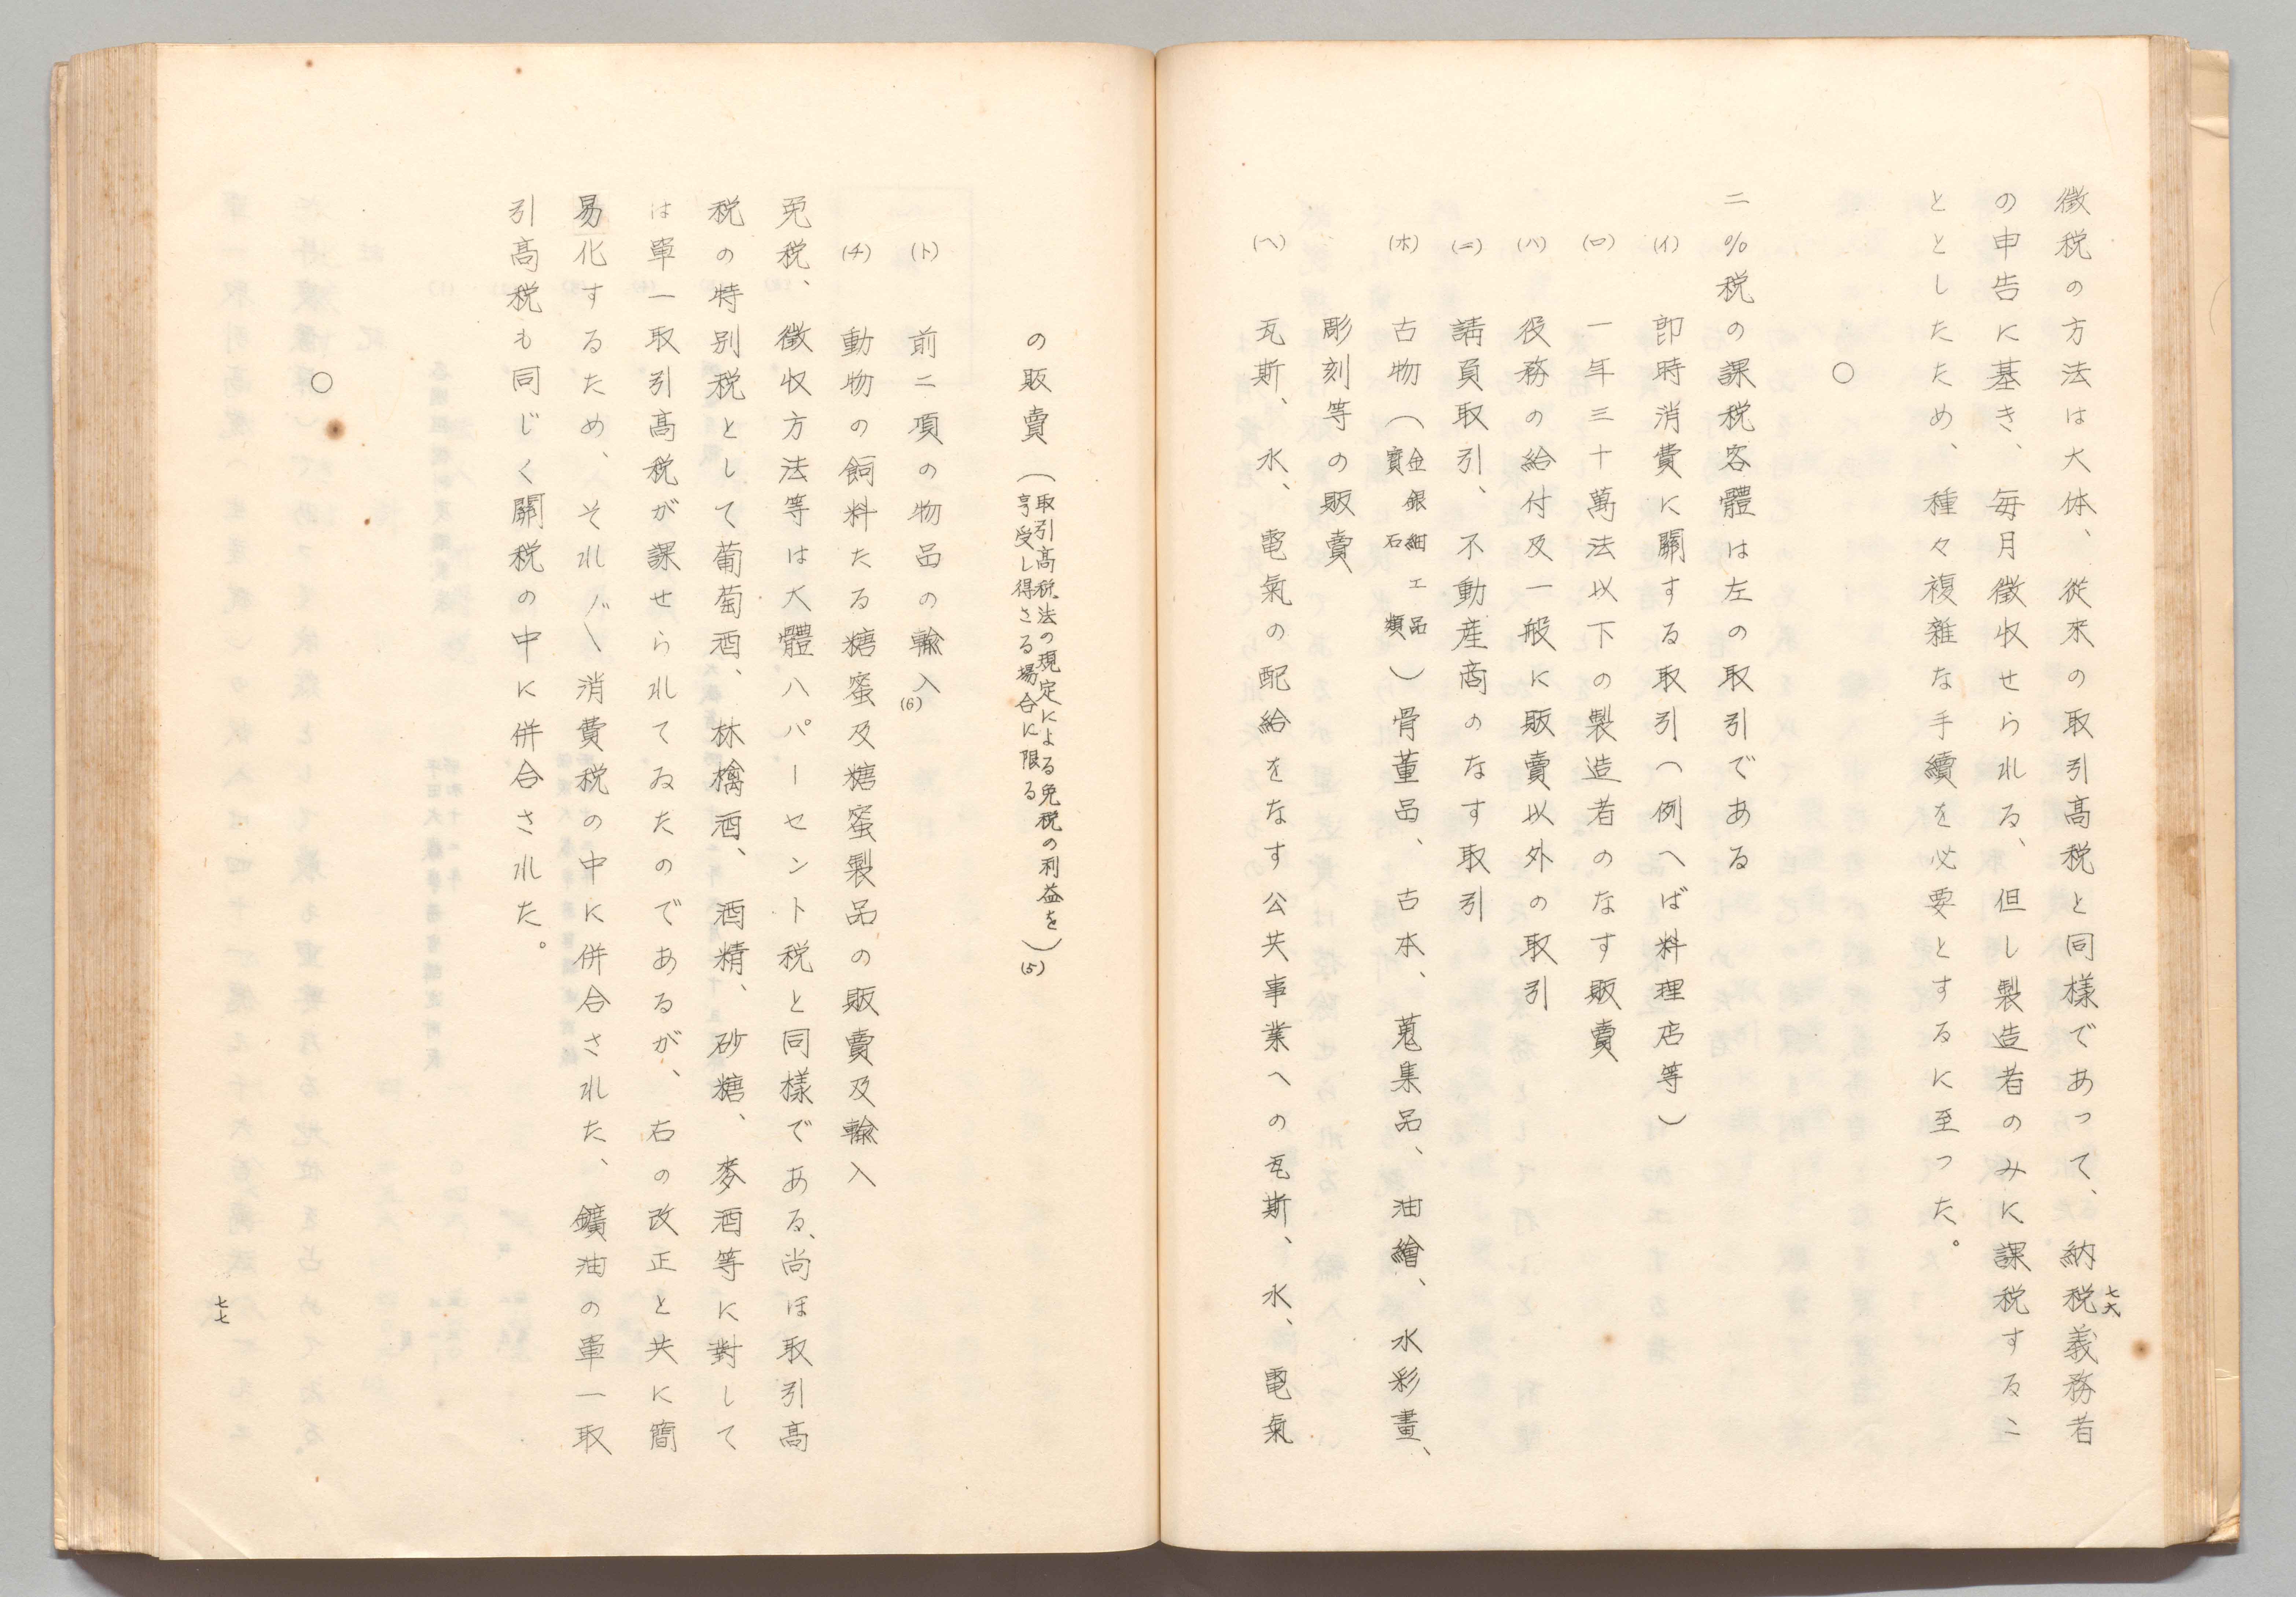 徴税の方法は大体、從来の取引髙税と同様であって、納税義務者
の申告に基き、毎月徴収せられる、但し製造者のみに課税するこ
ととしたため、種々複雜な手續を必要とするに至った。
○
二％税の課税客體は左の取引である
(イ) 卽時消費に關する取引(例へば料理店等)
(ロ) 一年三十萬法以下の製造者のなす販賣
(ハ) 役務の給付及一般に販賣以外の取引
(ニ) 請負取引、不動産商のなす取引
(ホ) 古物(金銀細工品寶石類)骨董品、古本、蒐集品、油繪、水彩畫、
彫刻等の販賣
(ヘ) 瓦斯、水、電氣の配給をなす公共事業への瓦斯、水、電氣
七六
の販賣(取引髙税法の現定による免税の利益を
享受し得さる場合に限る)(5)
(ト) 前二項の物品の輸入(6)
(チ) 動物の飼料たる糖蜜及糖蜜製品の販賣及輸入
免税、徴収方法等は大體八パーセント税と同様である、尚ほ取引髙
税の特別税として葡萄酒、林檎酒、酒精、砂糖、麥酒等に對して
は單一取引髙税が課せられてゐたのであるが、右の改正と共に簡
易化するため、それ〴〵消費税の中に併合された、鑛油の單一取
引髙税も同じく關税の中に併合された。
○
七七